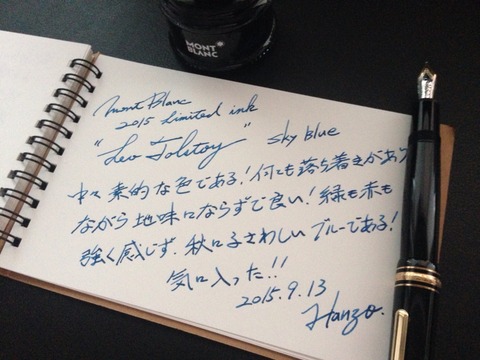 MONT
BLANC
Mont Blanc
2015 Limited ink
"Leo Tolstoy" sky blue
中々素的な色である!何とも落ち着きがあり
ながら地味にならずで良い!緑も赤も
強く感じず、秋にふさわしいブルーである!
気に入った!!
2015.9.13
Hanzo.